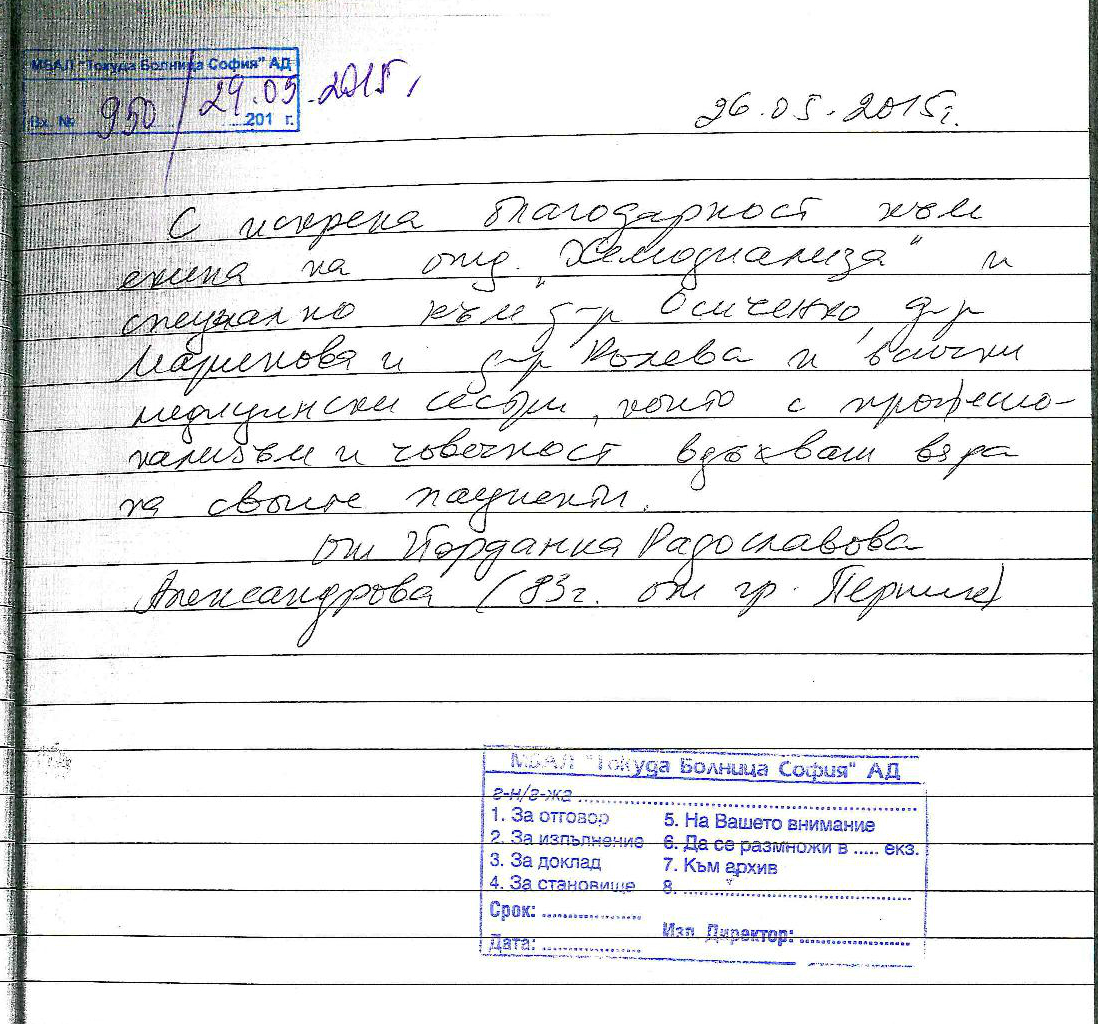 МБАЛ "Токуда Болница София" АД
Вх. № 950 / 29.05.2015г.
201 г.
26.05.2015г.
С искрена благодарност към
екипа на отд. „Хемодиализа“ и
специално към д-р Осиченко, д-р
Маринова и д-р Ролева и всички
медицински сестри, които с професио-
нализъм и човечност вдъхват вяра
на своите пациенти.
от Йорданка Радославова
Александрова (83г. от гр. Перник)
МБАЛ "Токуда Болница София" АД
г-н/г-жа
1. За отговор 5. На Вашето внимание
2. За изпълнение 6. Да се размножи в ..... екз.
3. За доклад 7. Към архив
4. За становище 8.
Срок: Изп. Директор:
Дата: